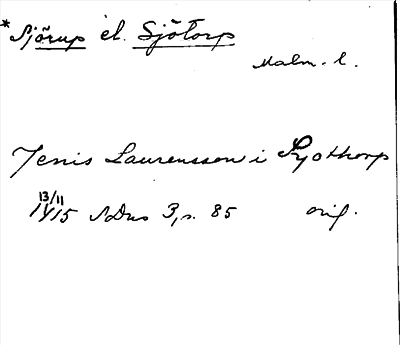 *Sjörup el. Sjötorp
Malm. l.
Jenis Laurensson i Syothorp
13/11
1415 SDns 3, s. 85 orig.